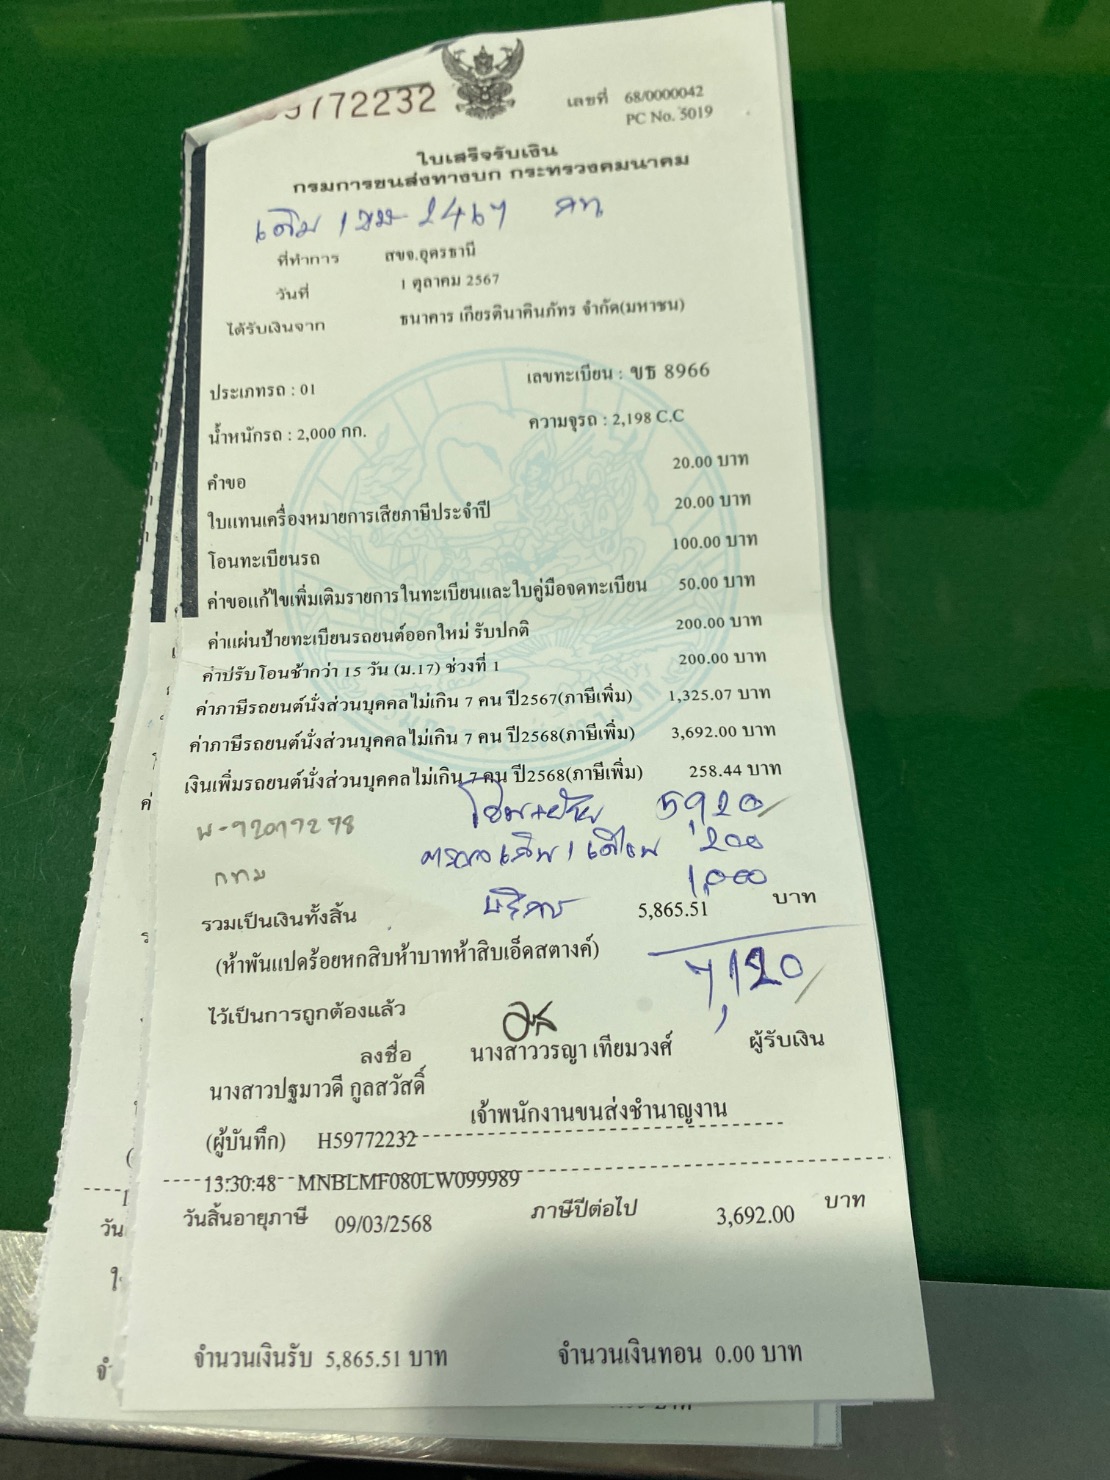 59772232
เลขที่ 68/0000042
PC No. 5019
ใบเสร็จรับเงิน
กรมการขนส่งทางบก กระทรวงคมนาคม
เดิม 1ขม-2467 กท
ที่ทำการ สขจ.อุดรธานี
วันที่ 1 ตุลาคม 2567
ได้รับเงินจาก ธนาคาร เกียรตินาคินภัทร จำกัด(มหาชน)
ประเภทรถ : 01 เลขทะเบียน : ขธ 8966
น้ำหนักรถ : 2,000 กก. ความจุรถ : 2,198 C.C
คำขอ 20.00 บาท
ใบแทนเครื่องหมายการเสียภาษีประจำปี 20.00 บาท
โอนทะเบียนรถ 100.00 บาท
ค่าขอแก้ไขเพิ่มเติมรายการในทะเบียนและใบคู่มือจดทะเบียน 50.00 บาท
ค่าแผ่นป้ายทะเบียนรถยนต์ออกใหม่ รับปกติ 200.00 บาท
ค่าปรับโอนช้ากว่า 15 วัน (ม.17) ช่วงที่ 1 200.00 บาท
ค่าภาษีรถยนต์นั่งส่วนบุคคลไม่เกิน 7 คน ปี2567(ภาษีเพิ่ม) 1,325.07 บาท
ค่าภาษีรถยนต์นั่งส่วนบุคคลไม่เกิน 7 คน ปี2568(ภาษีเพิ่ม) 3,692.00 บาท
เงินเพิ่มรถยนต์นั่งส่วนบุคคลไม่เกิน 7 คน ปี2568(ภาษีเพิ่ม) 258.44 บาท
โอน+ย้าย 5,920/
200
กทม
บริการ 1,000
รวมเป็นเงินทั้งสิ้น 5,865.51 บาท
(ห้าพันแปดร้อยหกสิบห้าบาทห้าสิบเอ็ดสตางค์) 7,120/
ไว้เป็นการถูกต้องแล้ว
ลงชื่อ นางสาววรญา เทียมวงศ์ ผู้รับเงิน
นางสาวปฐมาวดี กูลสวัสดิ์
เจ้าพนักงานขนส่งชำนาญงาน
(ผู้บันทึก) H59772232
13:30:48 MNBLMF080LW099989
วันสิ้นอายุภาษี 09/03/2568 ภาษีปีต่อไป 3,692.00 บาท
จำนวนเงินรับ 5,865.51 บาท จำนวนเงินทอน 0.00 บาท